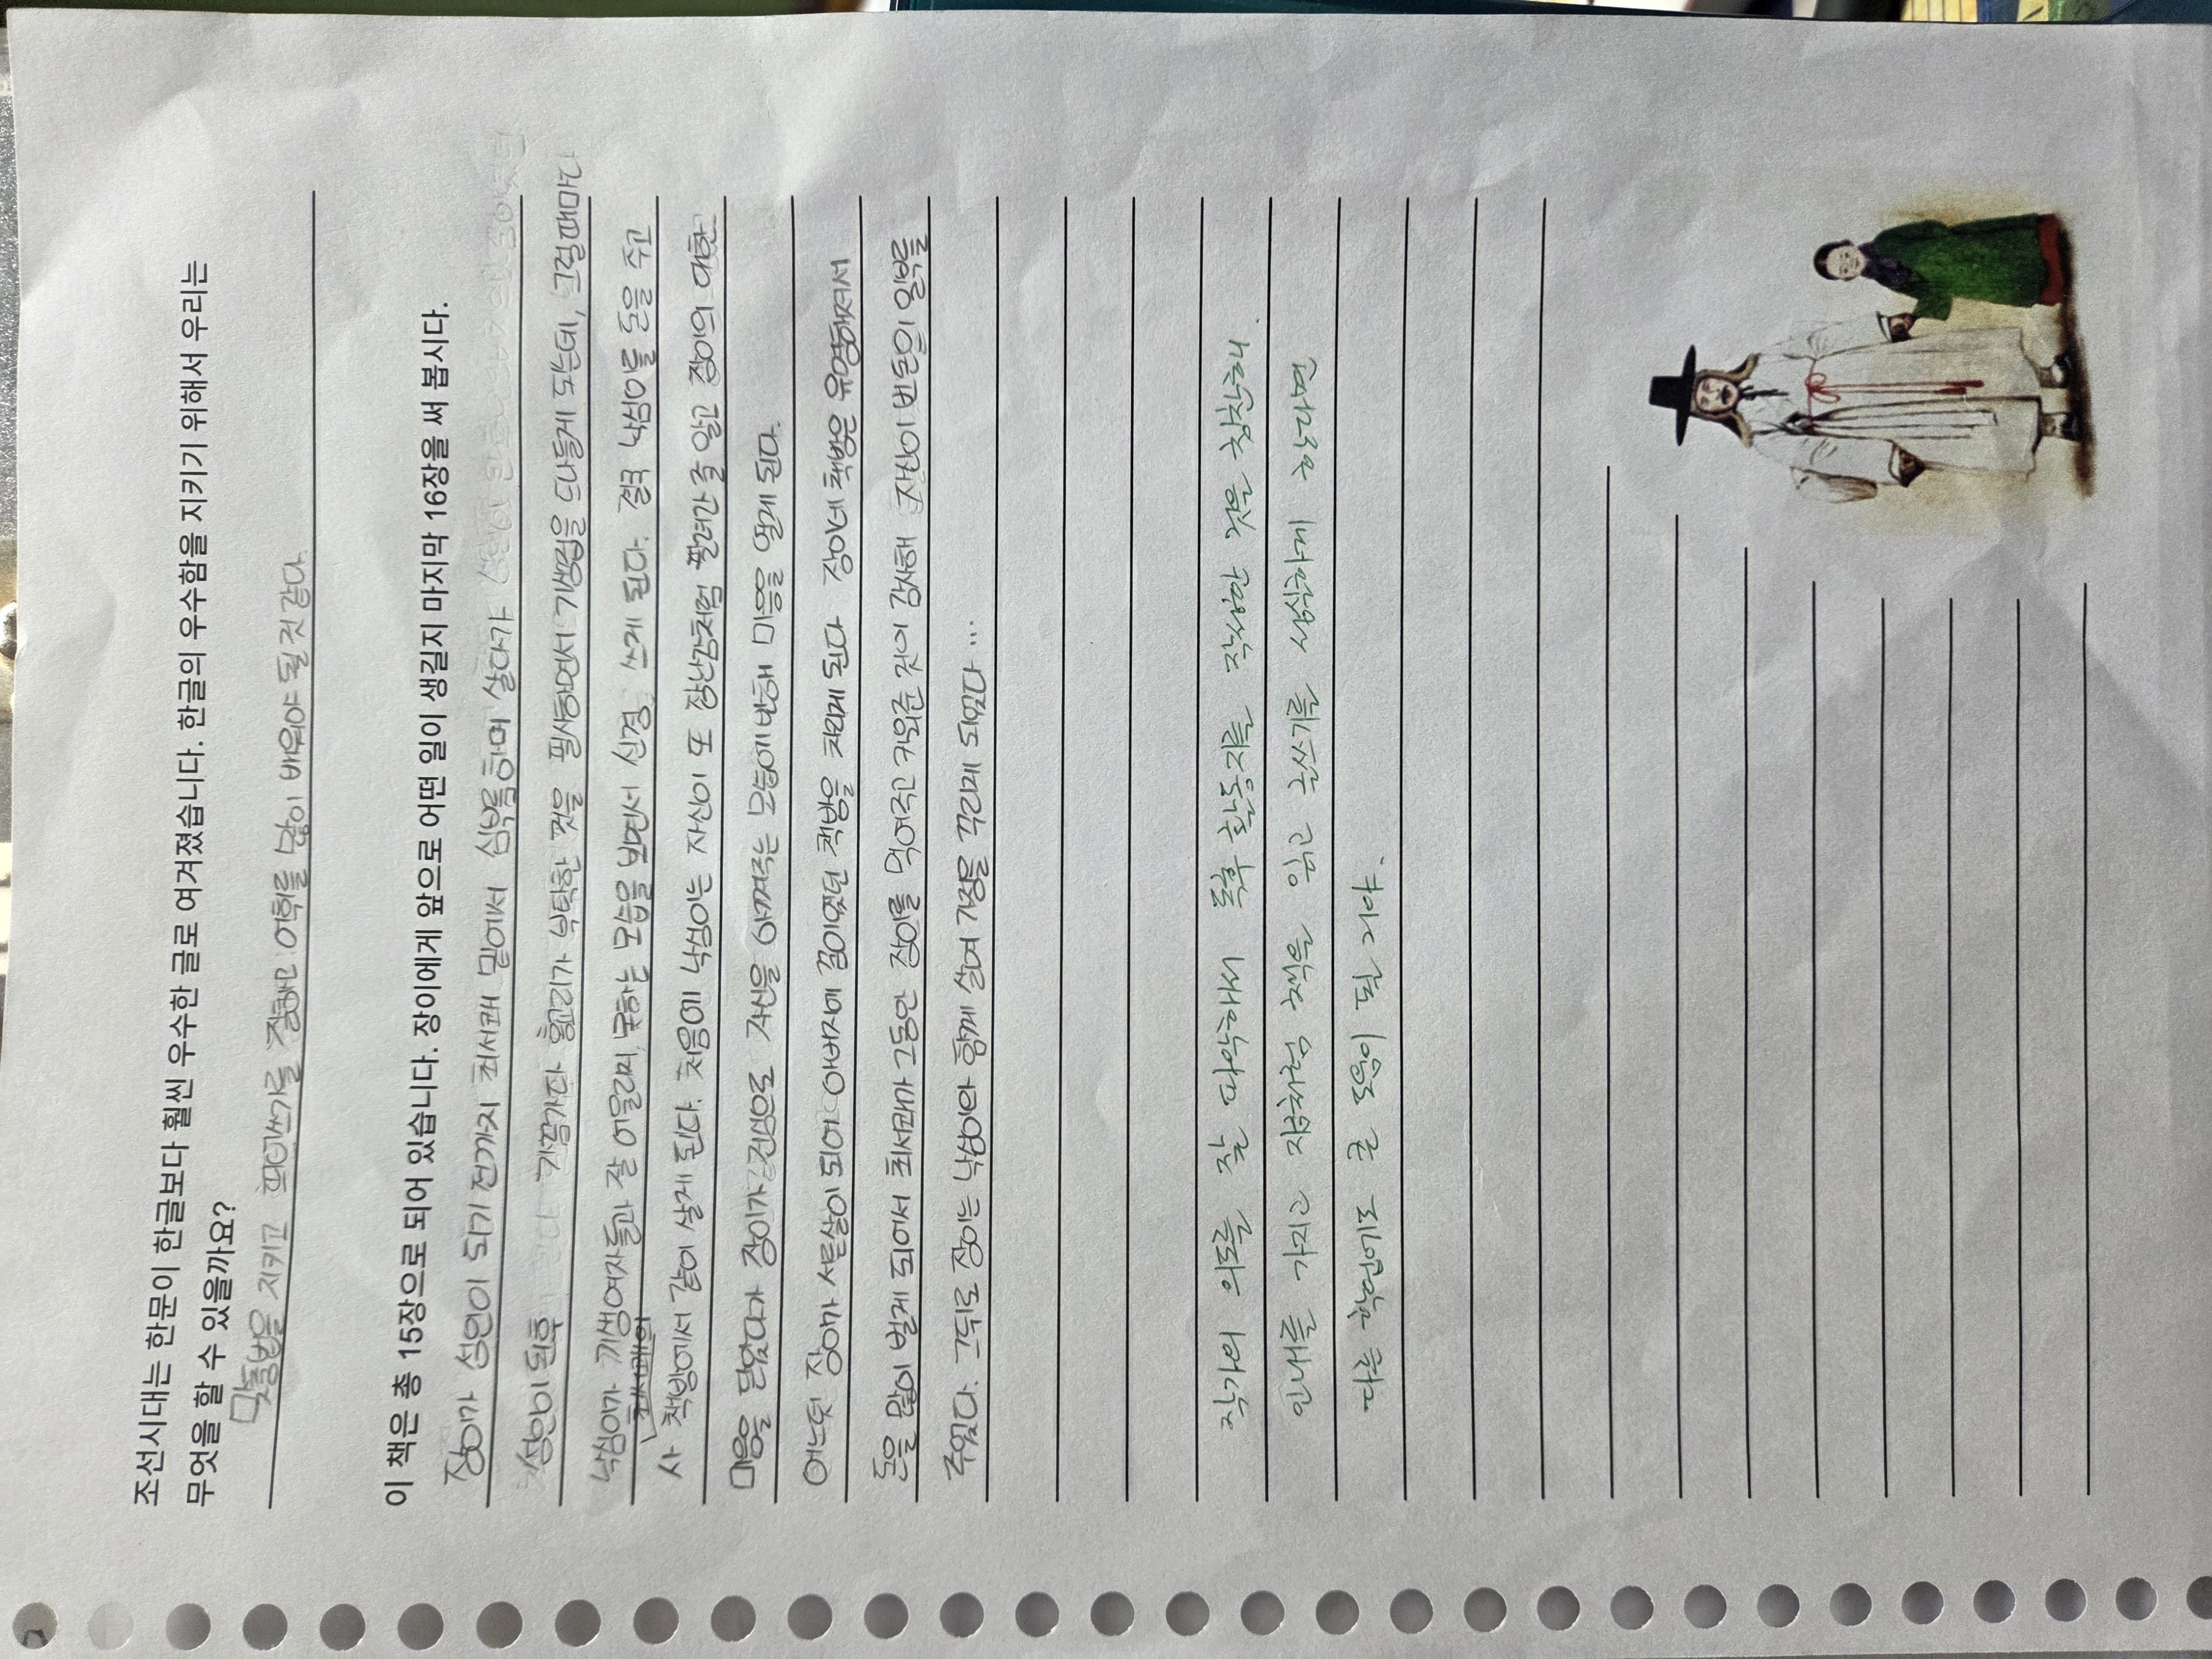 조선시대는 한문이 한글보다 훨씬 우수한 글로 여겨졌습니다. 한글의 우수함을 지키기 위해서 우리는
무엇을 할 수 있을까요?
맞춤법을 지키고 띄어쓰기를 잘하면 어휘를 많이 배워야 될 것 같다.
이 책은 총 15장으로 되어 있습니다. 장이에게 앞으로 어떤 일이 생길지 마지막 16장을 써 봅시다.
장이가 성인이 되기 전까지 최서쾌 밑에서 심부름하며 살다가
성인이 된 후 가끔가다 홍교리가 부탁한 것을 필사하면서 기생집을 드나들게 되는데, 그럴때마다
낙심이가 기생여자들과 잘 어울리지 못하는 모습을 보면서 신경 쓰게 된다. 결국 낙심이를 돈을 주고
최서쾌의
사 책방에서 같이 살게 된다. 처음에 낙심이는 자신이 또 장난감처럼 팔려간 줄 알고 장이의 대한
마음을 닫았다가 장이가 진심으로 자신을 아껴주는 모습에 반해 마음을 열게 된다.
어느덧 장이가 서른살이 되어 아버지에 꿈이였던 책방을 차리게 된다 장이네 책방은 유명해져서
돈을 많이 벌게 되어서 최서쾌가 그동안 장이를 먹여주고 키워준 것이 감사해 자신이 번 돈의 일부를
주었다. 그 뒤로 장이는 낙심이와 함께 살며 가정을 꾸리게 되었다 ...
작가의 의도를 잘 파악해서 독후 활동지를 작성한 것을 칭찬해.
인내를 가지고 지금처럼 책을 읽고 글쓰기를 성실하게 한다면
다른 학업에도 큰 도움이 될 거야.